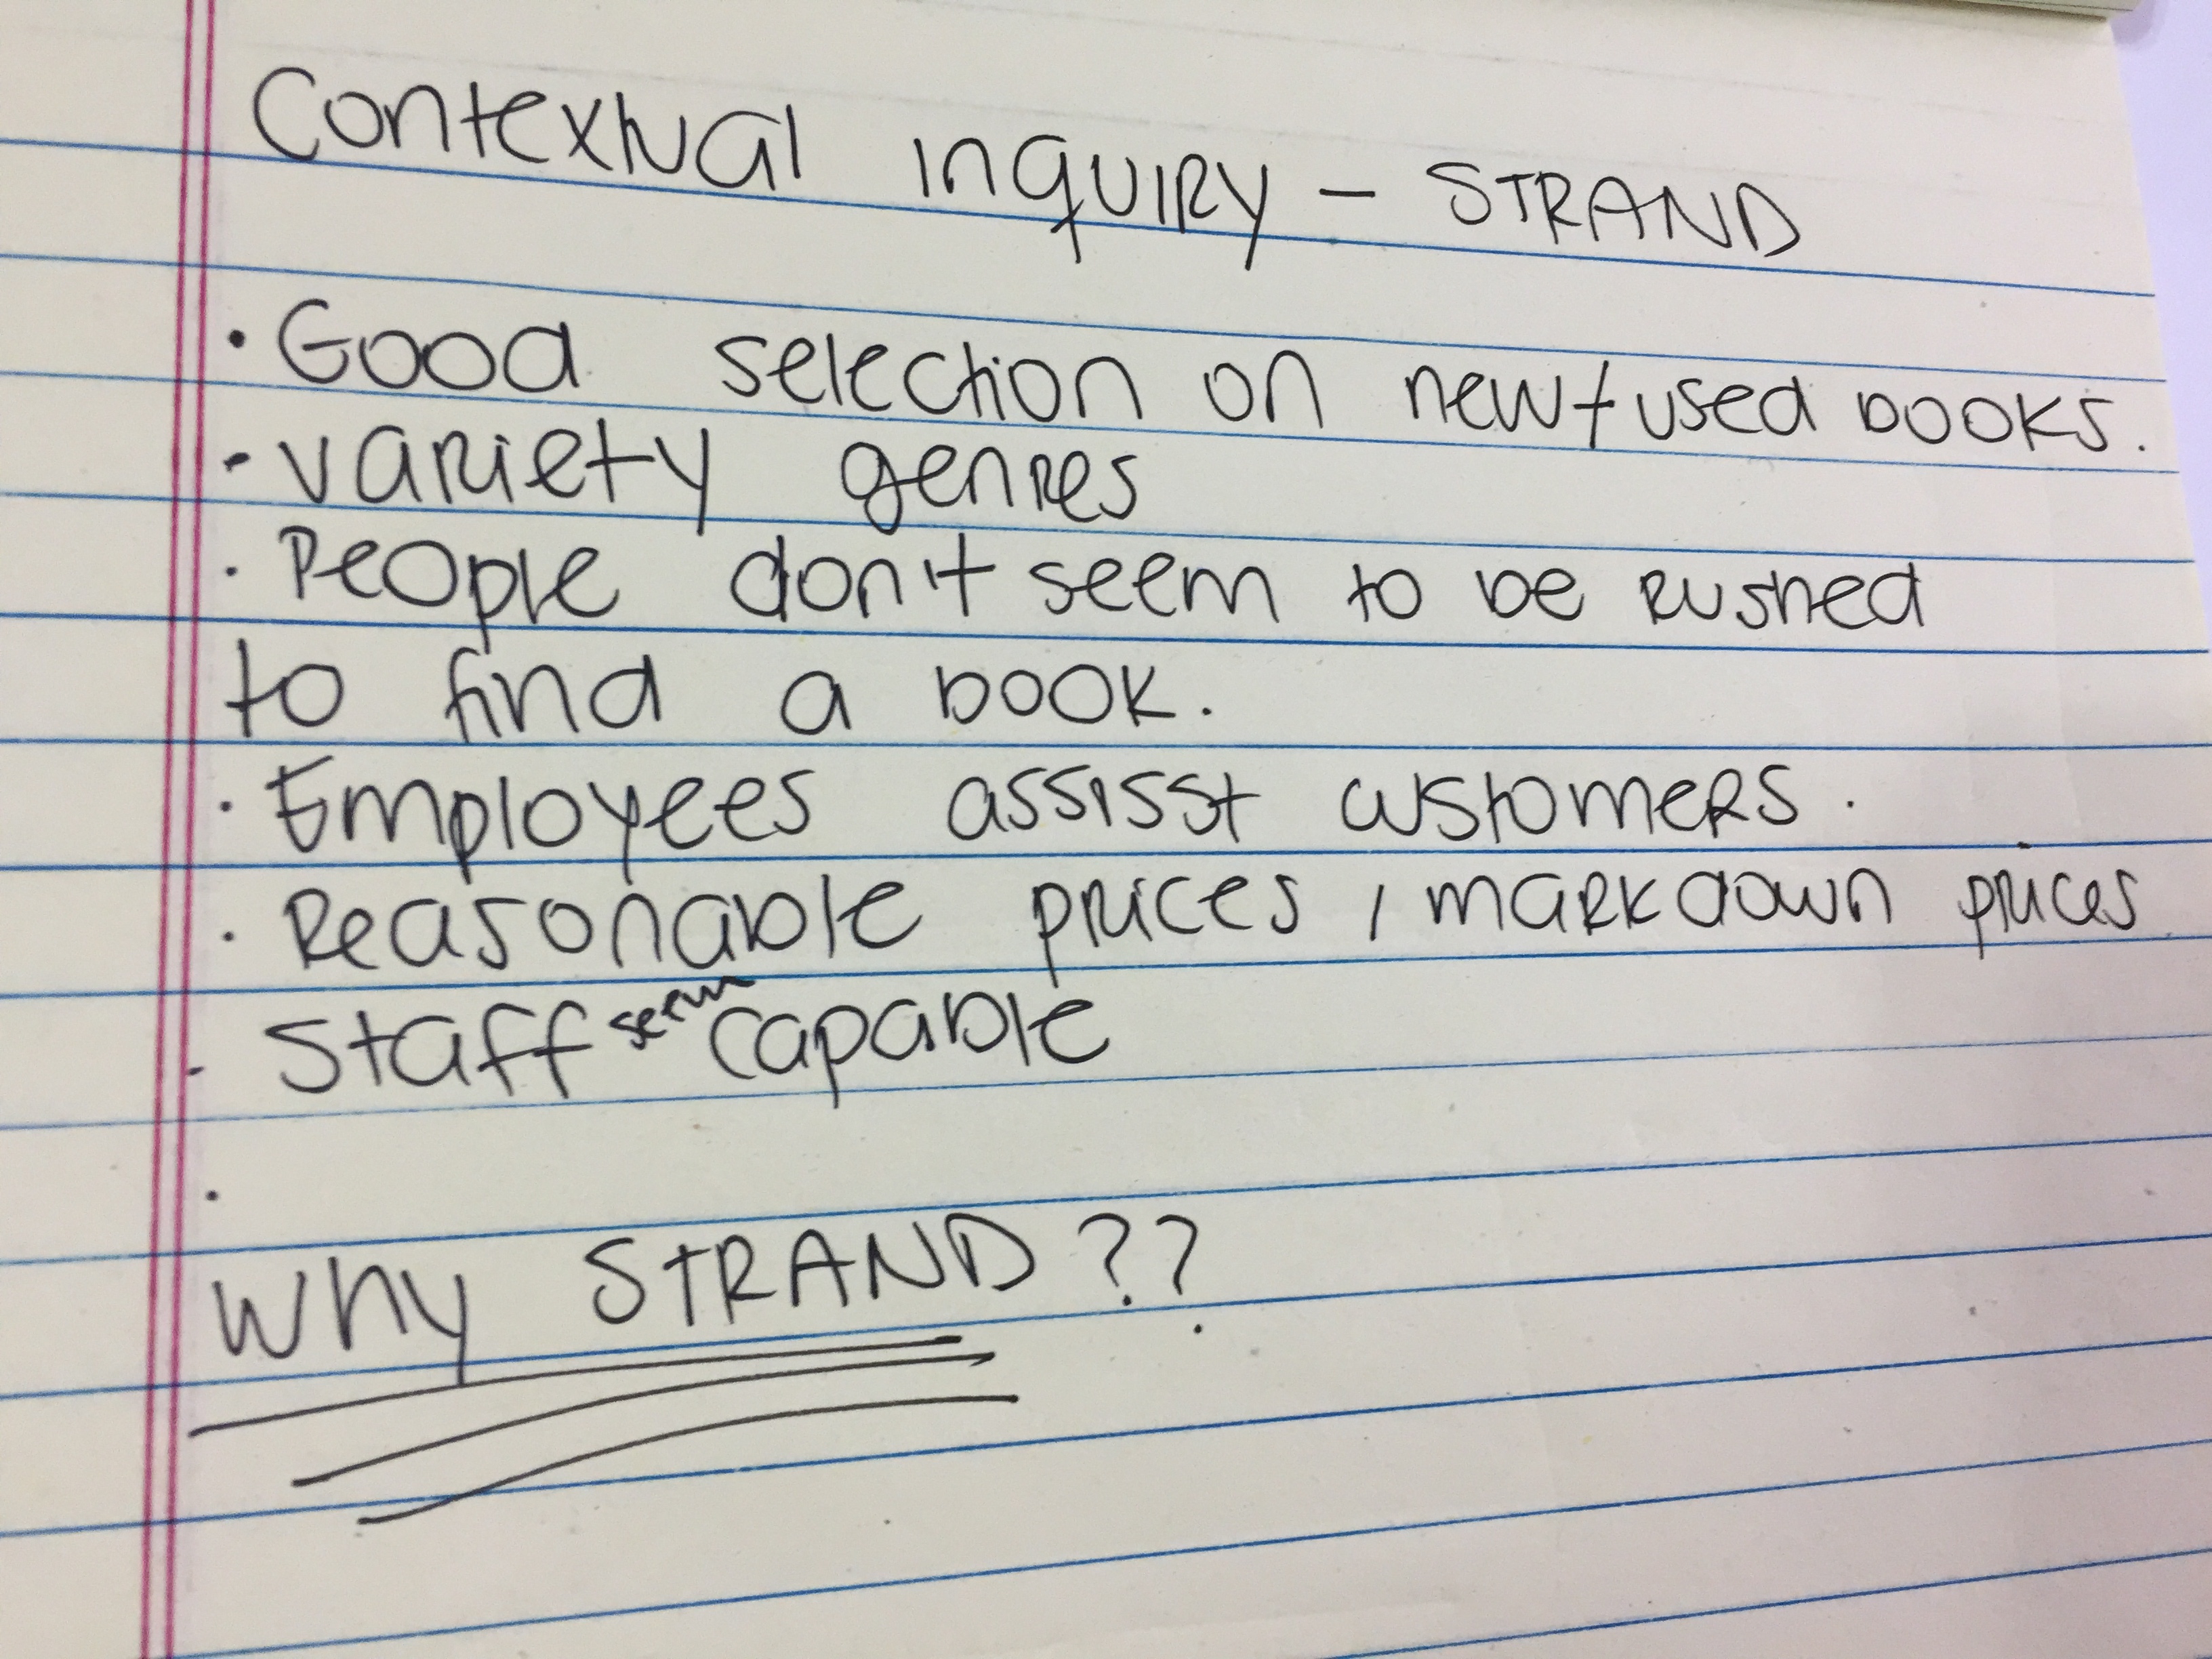 Contextual inquiry - STRAND
· Good selection on new + used books.
· variety genres
· People don't seem to be rushed
to find a book.
· Employees assisst customers.
· Reasonable prices / markdown prices
· Staff seem capable
·
Why STRAND??